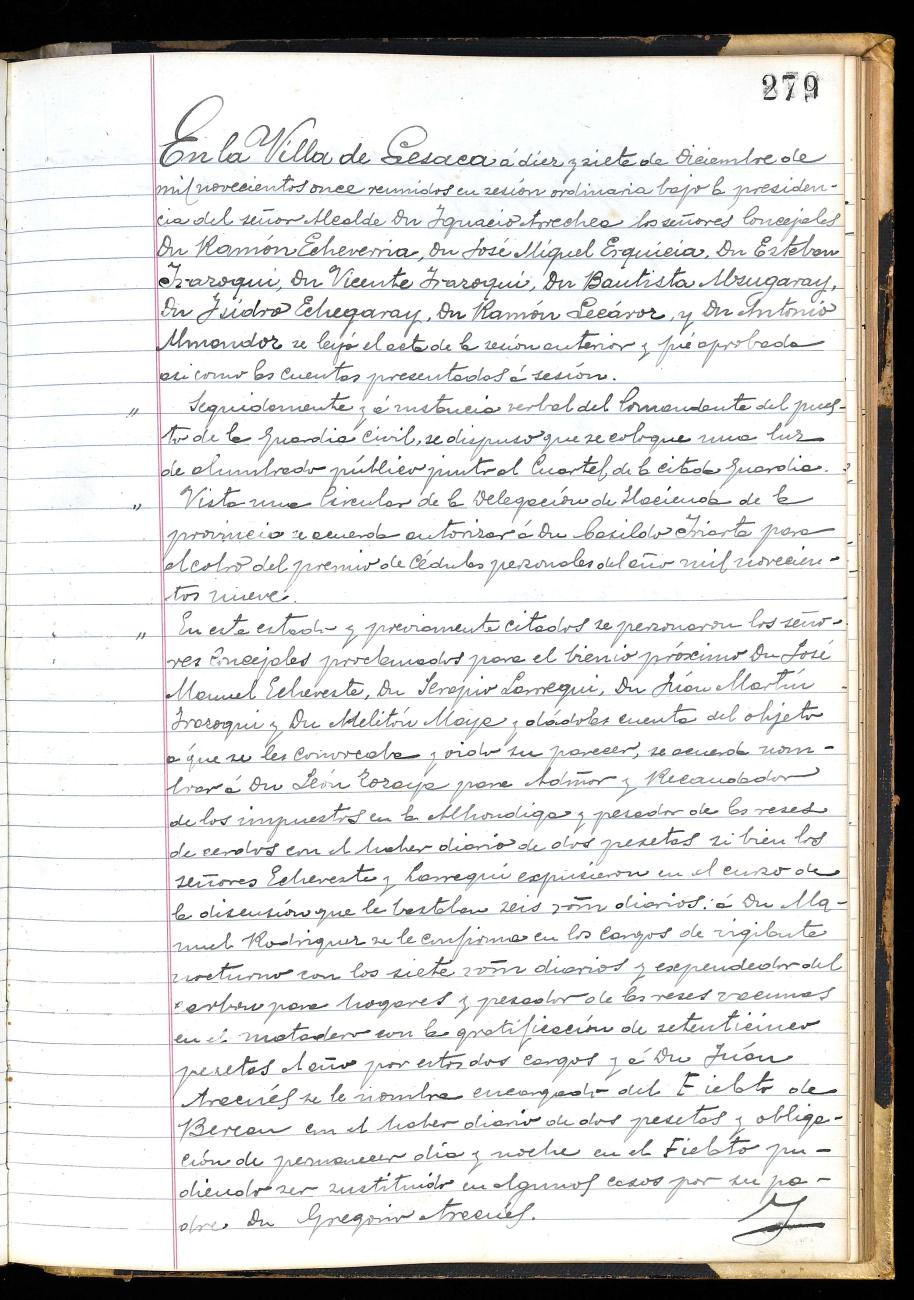 279
En la Villa de Lesaca á diez y siete de Diciembre de
mil novecientos once reunidos en sesión ordinaria bajo la presiden-
cia del señor Alcalde Dn Ignacio Arrechea los señores Concejales
Dn Ramón Echeverria, Dn José Miguel Erquicia, Dn Esteban
Irazoqui, Dn Vicente Irazoqui, Dn Bautista Almzugaray,
Dn Isidro Echegaray, Dn Ramón Lecároz, y Dn Antonio
Almandoz se leyó el acta de la sesión anterior y fué aprobada
asi como las cuentas presentadas á sesión.
" Seguidamente y á instancia verbal del Comandante del pues-
to de la Guardia civil, se dispuso que se coloque una luz
de alumbrado público junto al Cuartel de la citada Guardia.
" Vista una Circular de la Delegación de Hacienda de la
provincia se acuerda autorizar á Dn Casildo Iriarte para
el cobro del premio de Cédulas personales del año mil novecien-
tos nueve.
" En este estado y previamente citados se personaron los seño-
res Concejales proclamados para el bienio próximo Dn José
Manuel Echeveste, Dn Serapio Larregui, Dn Júan Martín
Irazoqui y Dn Melitón Maya y dádoles cuenta del objeto
á que se les convocaba y oido su parecer, se acuerda nom-
brar á Dn León Tozaya para Admor y Recaudador
de los impuestos en la Alhondiga y pesador de las reses
de cerdos con el haber diario de dos pesetas si bien los
señores Echeveste y Larregui expusieron en el curso de
la discusión que le bastaban seis rōm diarios: á Dn Ma-
nuel Rodriguez se le confirma en los cargos de vigilante
nocturno con los siete rōm diarios y expendedor del
carbon para hogares y pesador de las reses vacunas
en el matadero con la gratificación de setenticinco
pesetas al año por estos dos cargos y á Dn Júan
Arecués se le nombra encargado del Fielato de
Berean con el haber diario de dos pesetas y obliga-
ción de permanecer dia y noche en el Fielato pu-
diendo ser sustituido en algunos casos por su pa-
dre Dn Gregorio Arecués.